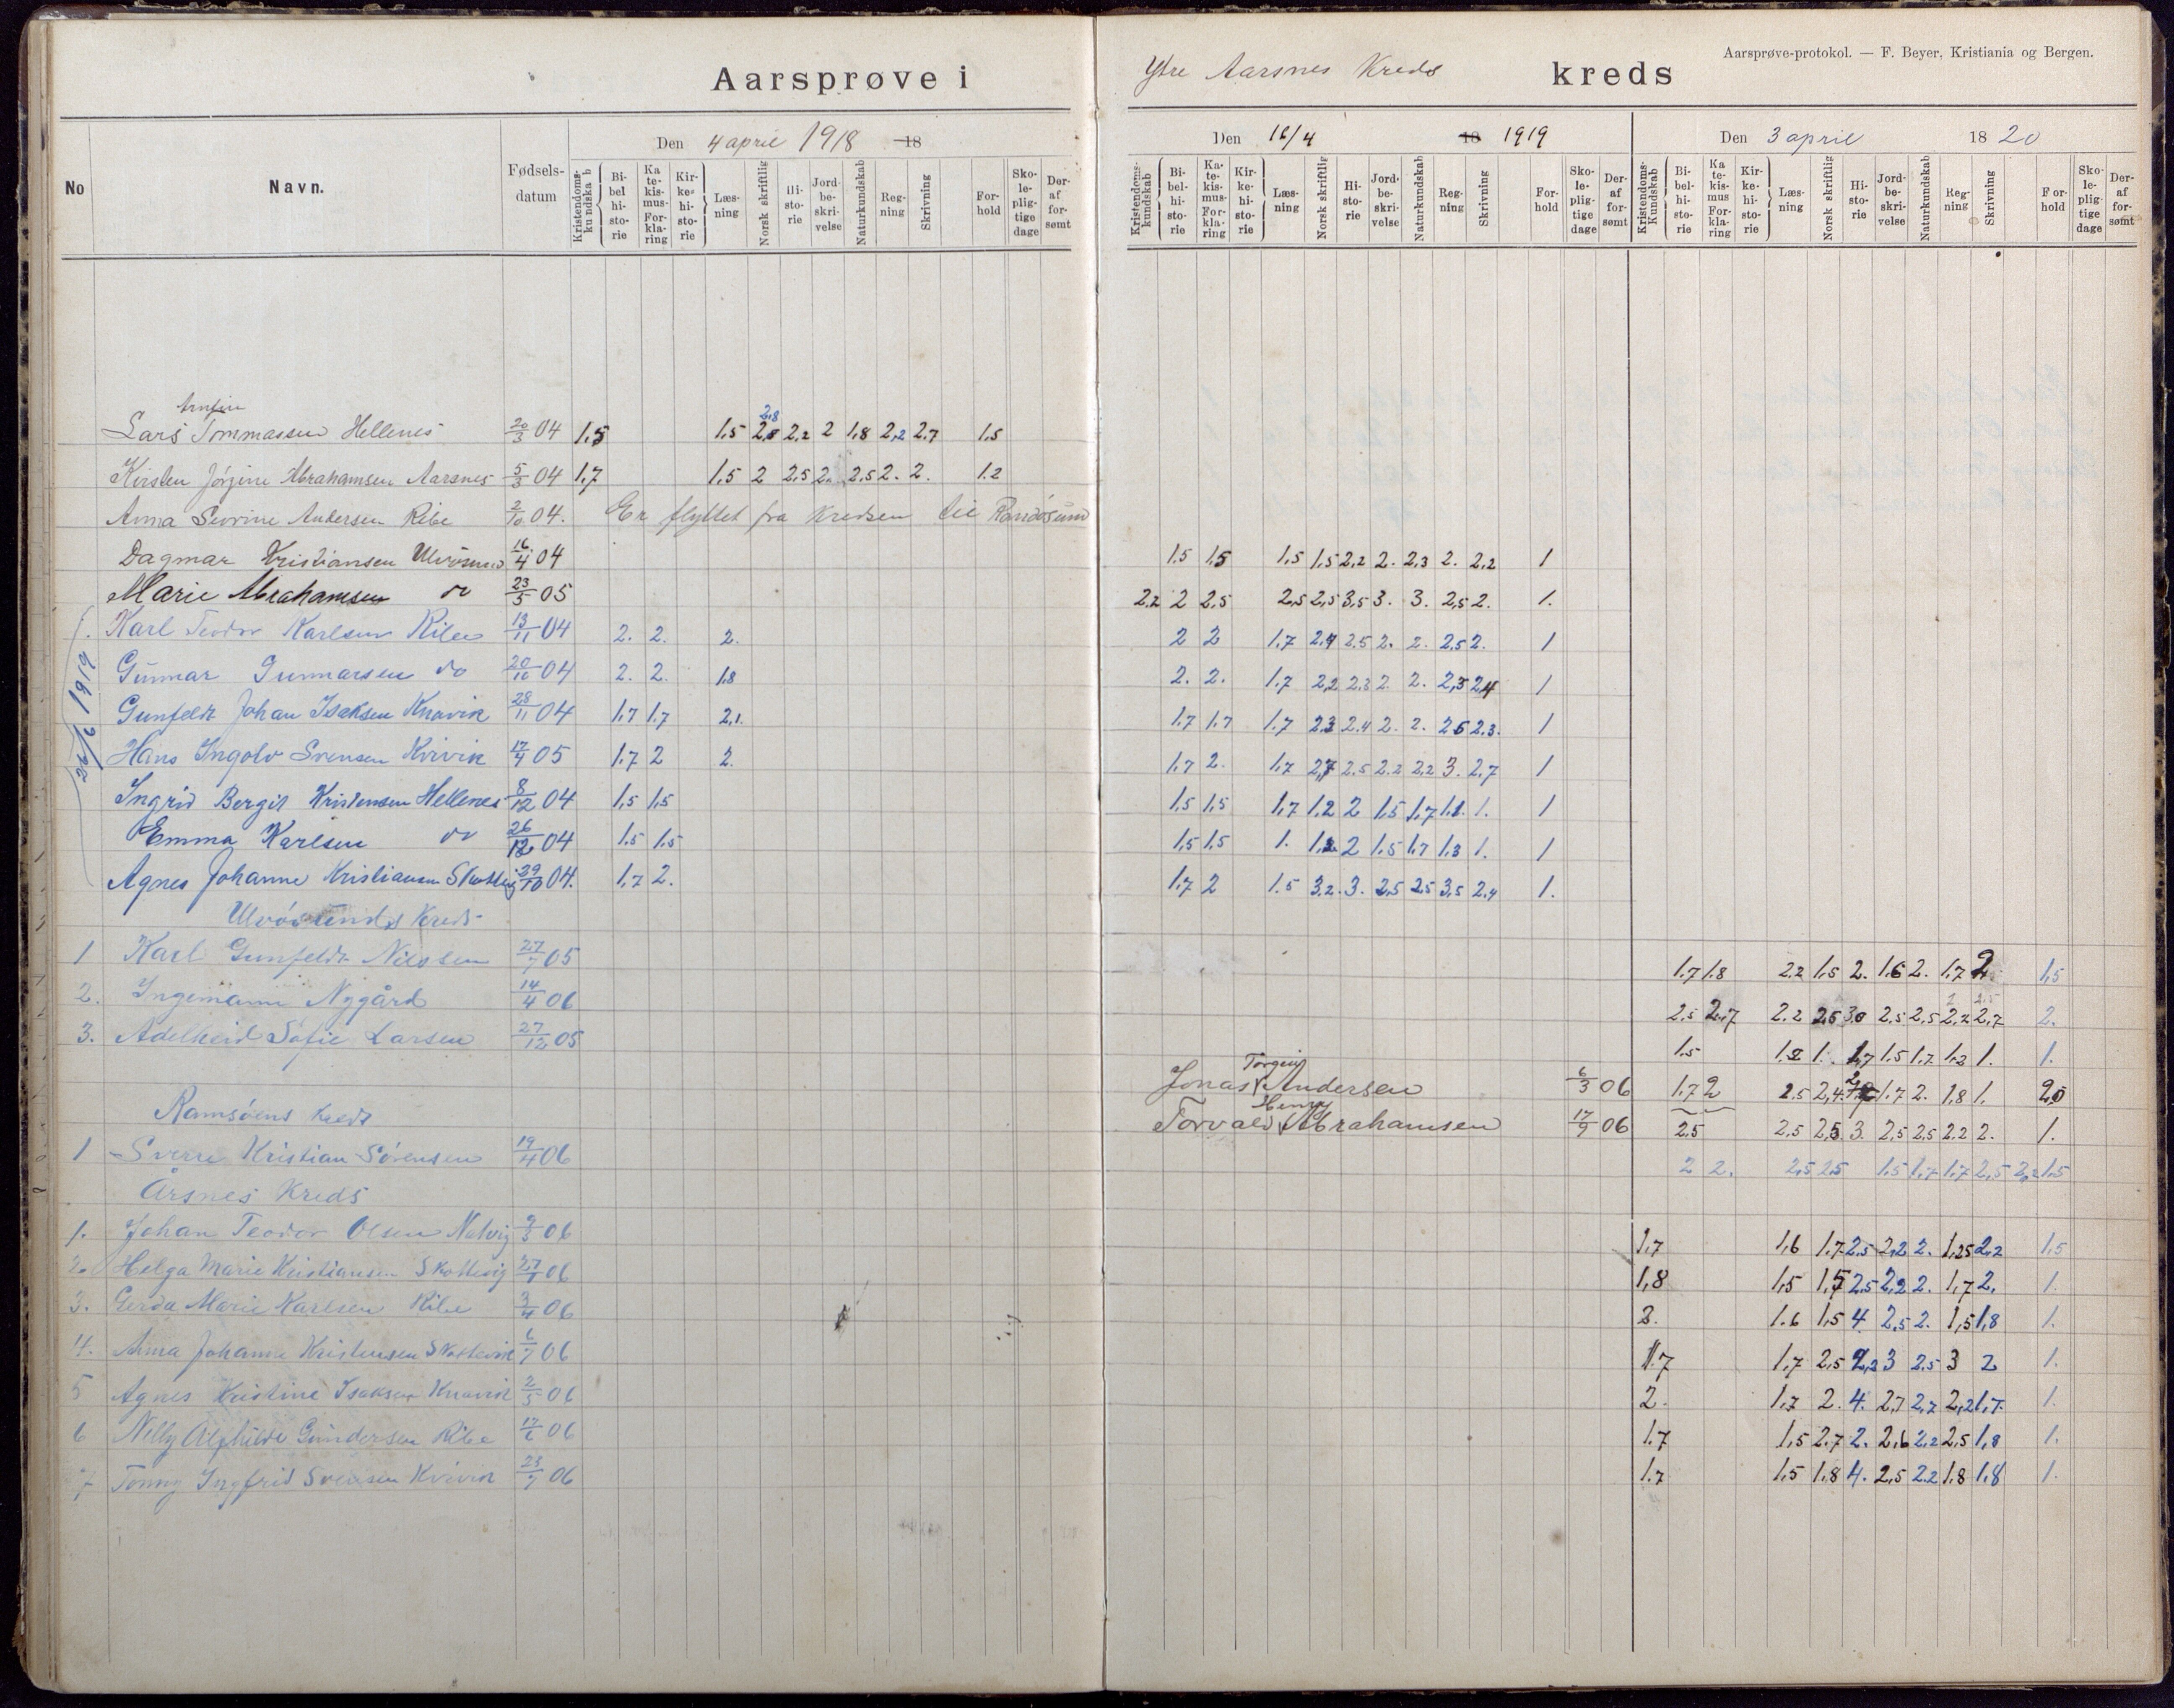 Aarsprøve i Ytre Aarsnes Kreds kreds
Aarsprøve-protokol. — F. Beyer, Kristiania og Bergen.
Den 4 april 1918 18
Den 16/4 18 1919
Den 3 april 18 20
No Navn. Fødsels-datum Kristendoms-kundskab Bibelhistorie Katekismus-Forklaring Kirkehistorie Læsning Norsk skriftlig Historie Jordbeskrivelse Naturkundskab Regning Skrivning Forhold Skolepligtige dage Deraf forsømt
Kristendoms-kundskab Bibelhistorie Katekismus-Forklaring Kirkehistorie Læsning Norsk skriftlig Historie Jordbeskrivelse Naturkundskab Regning Skrivning Forhold Skolepligtige dage Deraf forsømt
Kristendoms-Kundskab Bibelhistorie Katekismus Forklaring Kirkehistorie Læsning Norsk skriftlig Historie Jordbeskrivelse Naturkundskab Regning Skrivning Forhold Skolepligtige dage Deraf forsømt
Lars Tommassen Hellenes 20/3 04 1,5 1,5 2,8 2,2 2 1,8 2,2 2,7 1,5
Kirsten Jórgine Abrahamsen Aarsnes 5/3 04 1,7 1,5 2 2,5 2. 2,5 2. 2. 1.2
Anna Sevrine Andersen Ribe 2/10 04. Er flyttet fra Kredsen til Randósund
Dagmar Kristiansen 16/4 04 1,5 1,5 1,5 1,5 2,2 2. 2,3 2. 2,2 1
Marie Abrahamsen do 23/5 05 2,2 2 2,5 2,5 2,5 3,5 3. 3. 2,5 2. 1.
Karl Teodor Karlsen Ribe 13/11 04 2. 2. 2. 2 2 1,7 2,4 2.5 2. 2. 2,5 2. 1
Gunnar Gunnarsen do 20/10 04 2. 2. 1,8 2. 2. 1,7 2,2 2.3 2. 2. 2,3 2,4 1
Gunfeldt Johan Isaksen Knavik 28/11 04 1,7 1,7 2,1. 1,7 1,7 1,7 2,3 2,4 2. 2. 2,5 2,3. 1
Hans Ingolv Svensen Kvivik 17/4 05 1,7 2 2. 1,7 2. 1,7 2,7 2.5 2.2 2,2 3. 2,7 1
22/6 1919
Ingrid Bergit Kristensen Hellenes 8/12 04 1,5 1,5 1,5 1,5 1,7 1,2 2 1,5 1,7 1,1. 1. 1
Emma Karlsen do 26/12 04 1,5 1,5 1,5 1,5 1. 1,2 2 1,5 1,7 1,3 1. 1
Agnes Johanne Kristiansen 29/10 04. 1,7 2. 1,7 2 1.5 3,2. 3. 2,5 2,5 3,5 2,4 1.
Ulvósunds Kreds
1 Karl Gunfeldt Nilssen 27/7 05 1,7 1,8 2,2 1,5 2. 1,6 2. 1,7 2. 1,5
2. Ingemann Nygård 14/4 06 2,5 2,7 2.2 2,5 3,0 2,5 2,5 2,2 2,7 2.
3. Adelheid Sofie Larsen 27/12 05 1,5 1,2 1. 1,7 1,5 1,7 1,3 1. 1.
Jonas Torgny Andersen 6/3 06 1,7 2 2.5 2,4 1,7 2. 1,8 1. 2,0
Ramsóens Kreds
Torvald Henry Abrahamsen 17/9 06 2,5 2,5 2,5 3. 2,5 2,5 2.2 2. 1.
1 Sverre Kristian Sórensen 19/4 06 2 2. 2,5 2,5 1,5 1,7 1,7 2,5 2,2 1,5
Årsnes Kreds
1. Johan Teodor Olsen Natvig 9/3 06 1,7 1,6 1,7 2,5 2,2 2. 1,25 2,2 1,5
2. Helga Marie Kristiansen Skottevig 27/1 06 1,8 1,5 1,5 2,5 2,2 2. 1,7 2. 1.
3. Gerda Marie Karlsen Ribe 3/4 06 2. 1.6 1,5 4 2,5 2. 1,5 1,8 1.
4. Anna Johanne Kristensen Skottevik 6/7 06 1.7 1,7 2,5 2,2 3 2,5 3 2 1.
5 Agnes Kristine Isaksen Knavik 2/5 06 2. 1,7 2. 4. 2,7 2,2 2,2 1,7. 1.
6 Nelly Alphilde Gundersen Ribe 17/6 06 1.7 1,5 2,7 2. 2,6 2,2 2,5 1,8 1.
7 Tonny Ingfrid Svensen Kvivik 23/7 06 1.7 1,5 1.8 4. 2,5 2.2 1,8 1,8 1.